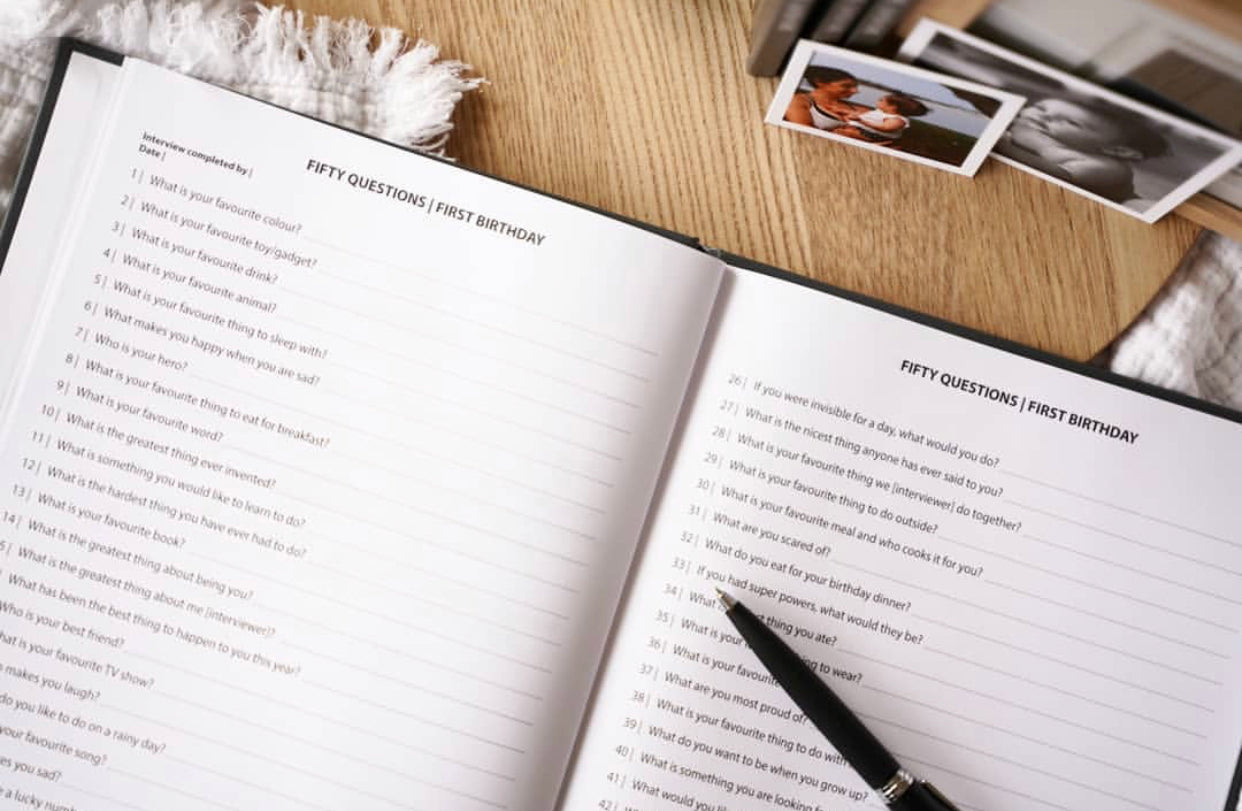 Interview completed by |
Date |
FIFTY QUESTIONS | FIRST BIRTHDAY
1 | What is your favourite colour?
2 | What is your favourite toy/gadget?
3 | What is your favourite drink?
4 | What is your favourite animal?
5 | What is your favourite thing to sleep with?
6 | What makes you happy when you are sad?
7 | Who is your hero?
8 | What is your favourite thing to eat for breakfast?
9 | What is your favourite word?
10 | What is the greatest thing ever invented?
11 | What is something you would like to learn to do?
12 | What is the hardest thing you have ever had to do?
13 | What is your favourite book?
14 | What is the greatest thing about being you?
5 | What is the greatest thing about me [interviewer]?
| What has been the best thing to happen to you this year?
Who is your best friend?
your favourite TV show?
makes you laugh?
do you like to do on a rainy day?
your favourite song?
you sad?
a lucky
FIFTY QUESTIONS | FIRST BIRTHDAY
26 | If you were invisible for a day, what would you do?
27 | What is the nicest thing anyone has ever said to you?
28 | What is your favourite thing we [interviewer] do together?
29 | What is your favourite thing to do outside?
30 | What is your favourite meal and who cooks it for you?
31 | What are you scared of?
32 | What do you eat for your birthday dinner?
33 | If you had super powers, what would they be?
34 | What thing you ate?
35 | What is your to wear?
36 | What is your favourite
37 | What are you most proud of?
38 | What is your favourite thing to do with
39 | What do you want to be when you grow up?
40 | What is something you are looking
41 | What would you
42 |